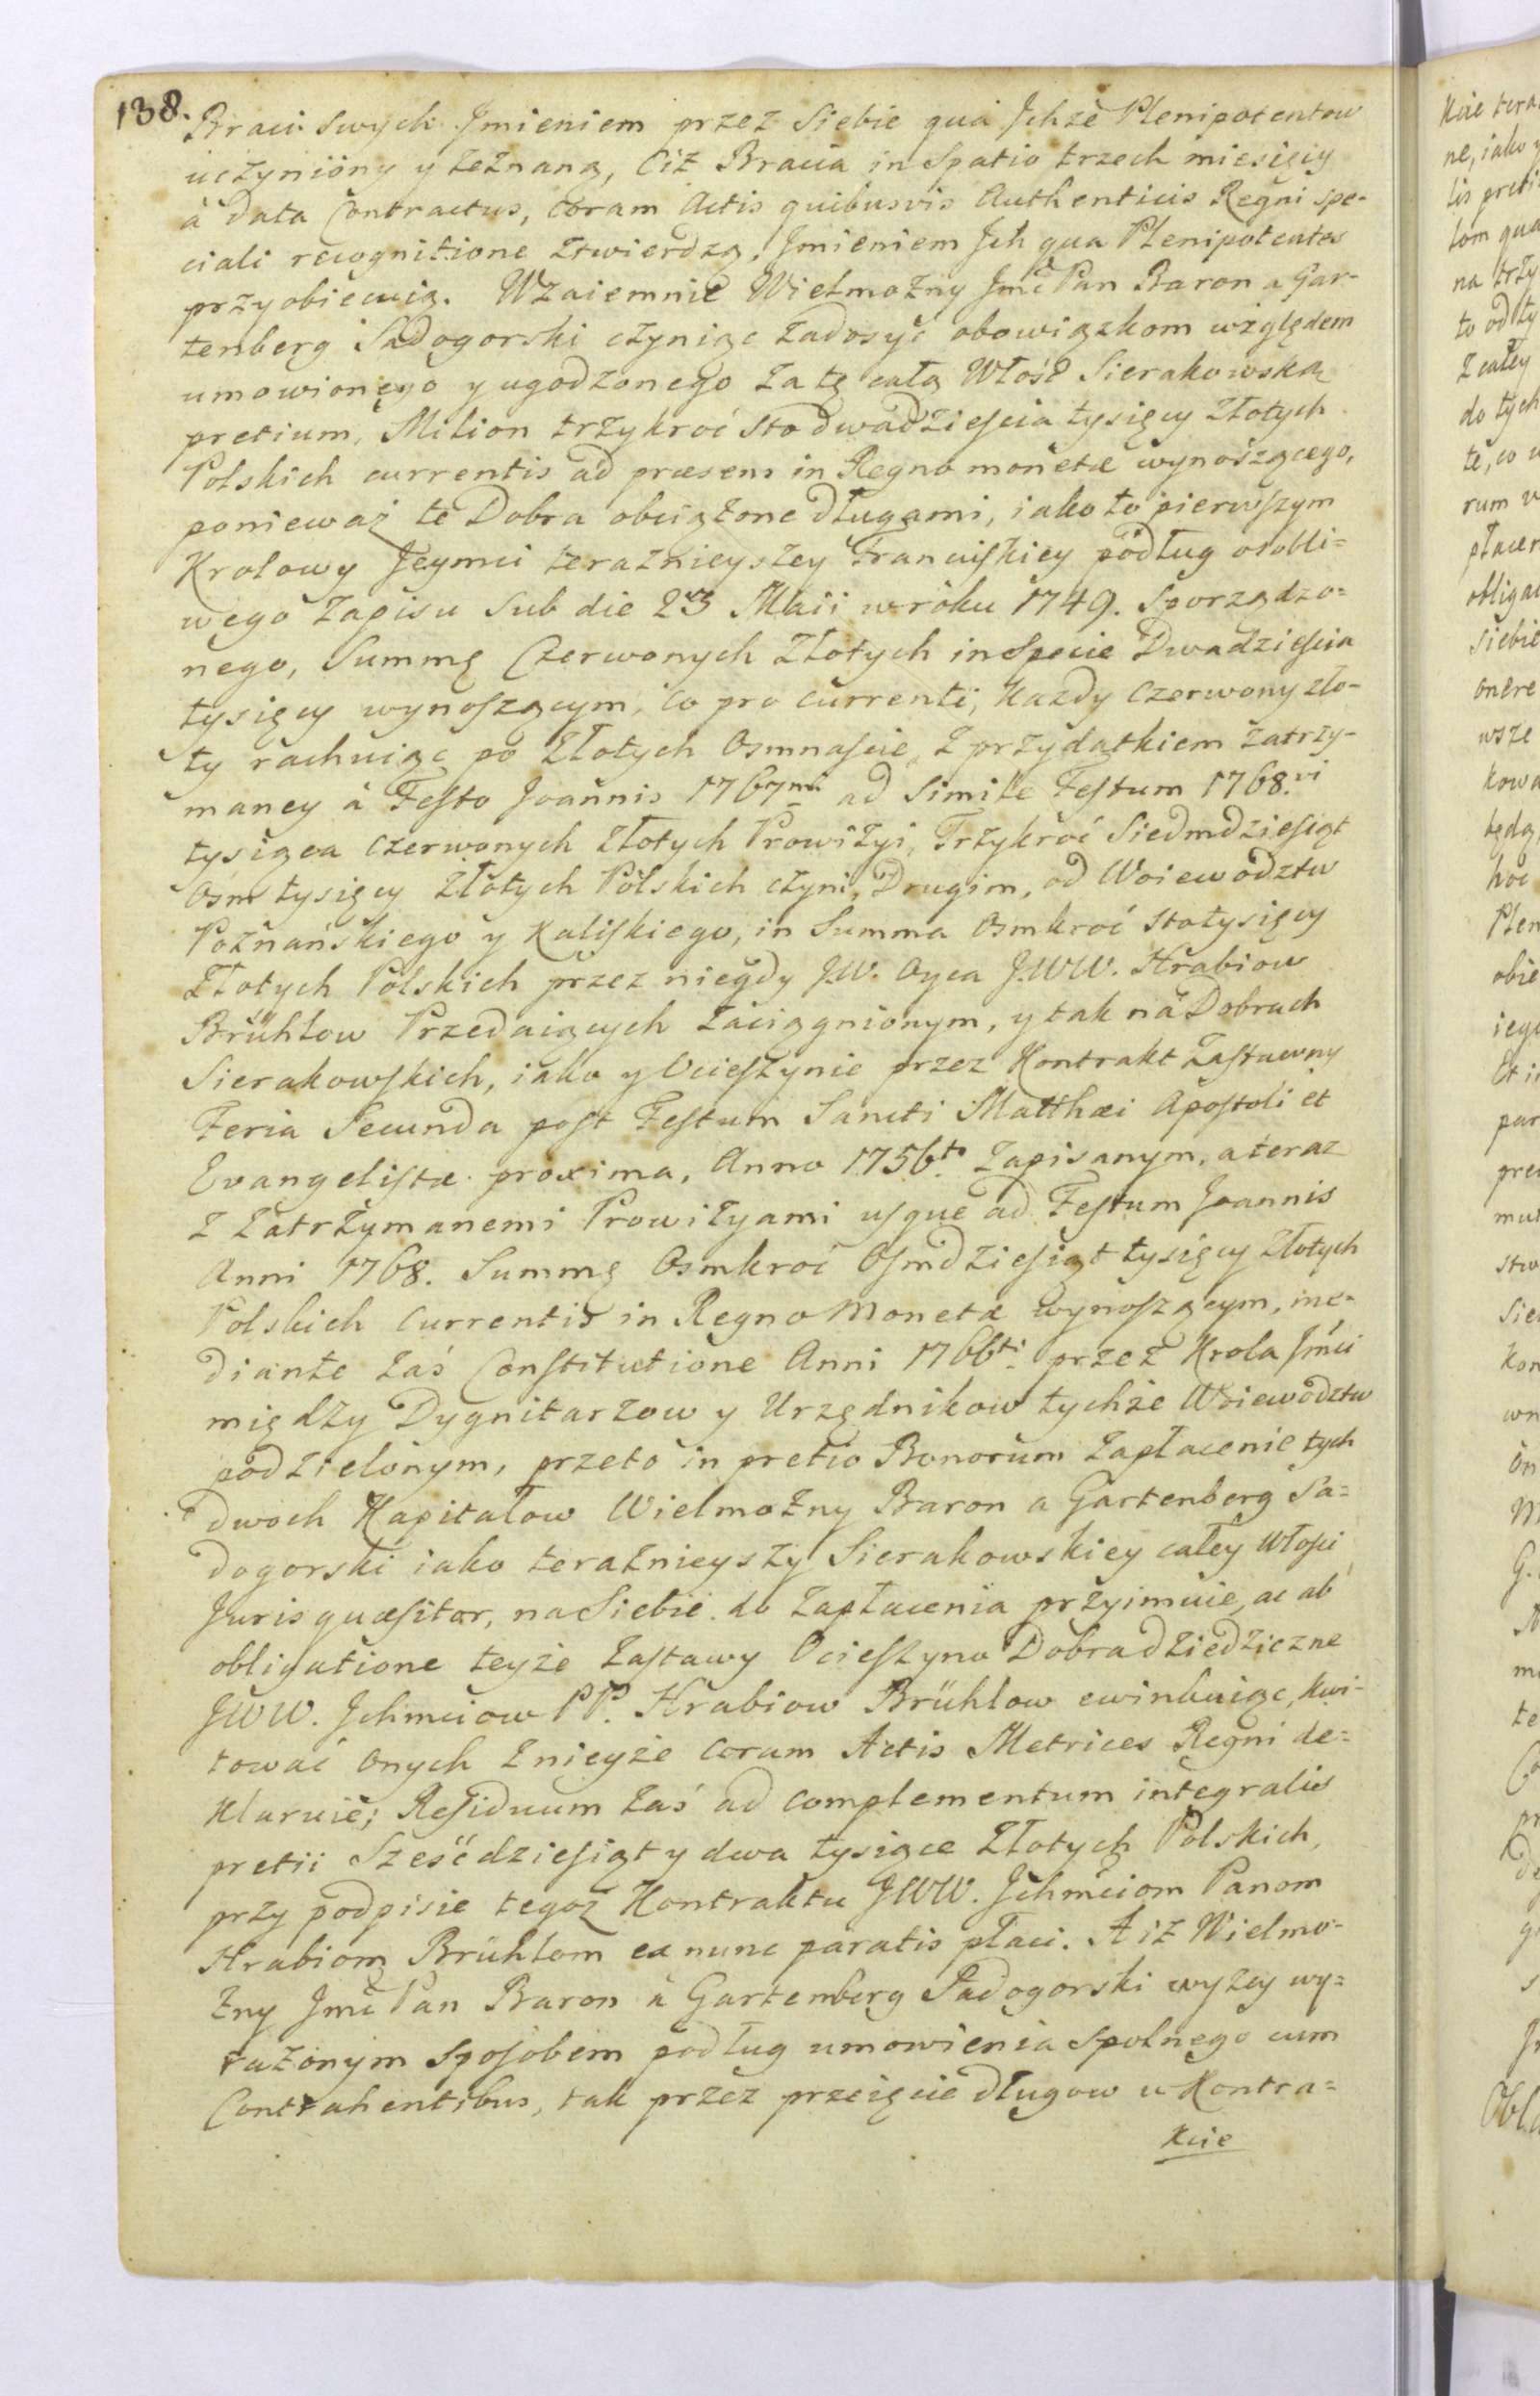 138.
Braci swych Jmieniem przez Siebie qua Jchże Plenipotentow
uczynióny y zeznaną, Ciż Bracia in Spatio trzech miesięcy
à data Contractus, Coram Actis quibusvis Authenticis Regni spe-
ciali recognitione ztwierdzą, Jmieniem Jch qua Plenipotentes
przyobiecuią. Wzaiemnie Wielmożny Jmć Pan Baron a Gar-
tenberg Sadogorski czyniąc zadosyć obowiązkom względem
umowionego y ugodzonego za tę całą Włość Sierakowską
pretium, Milion trzykroć sto dwadzieścia tysięcy Złotych
Polskich currentis ad præsens in Regno monetæ wynoszącego,
ponieważ te Dobra obciążone długami, iako to pierwszym
Krolowy Jeymci terażnieyszey Francuskiey podług osobli=
wego Zapisu Sub die 23 Maii w roku 1749. sporządzo=
nego, Summę Czerwonych Złotych in Specie Dwadzieścia
tysięcy wynoszącym, co pro currenti, każdy Czerwony zło-
ty rachuiąc po Złotych Osmnaście, z przydatkiem zatrzy-
maney à Festo Joannis 1767mi ad Simile Festum 1768.vi
tysiąca Czerwonych Złotych Prowizyi, Trzykroć Siedmdziesiąt
Ośm tysięcy Złotych Polskich czyni, Drugim, od Woiewodztw
Poznańskiego y Kaliskiego, in Summa Osmkroć stotysięcy
Złotych Polskich przez niegdy J.W. Oyca J.WW. Hrabiow
Brühlow Przedaiących zaciągnionym, y tak na Dobrach
Sierakowskich, iako y Ocieszynie przez Kontrakt Zastawny
Feria Secunda post Festum Sancti Matthæi Apostoli et
Evangelistæ proxima, Anno 1756to Zapisanym, a teraz
z Zatrzymanemi Prowizyami usque ad Festum Joannis
Anni 1768. Summę Osmkroć Osmdziesiąt tysięcy Złotych
Polskich Currentis in Regno Monetæ wynoszącym, me-
diante zaś Constitutione Anni 1766ti przez Krola Jmci
między Dygnitarzow y Urzędnikow tychże Woiewodztw
podzielonym, przeto in pretio Bonorum zapłacenie tych
dwoch Kapitałow Wielmożny Baron a Gartenberg Sa=
dogorski iako terażnieyszy Sierakowskiey całey Włości
Juris quæsitor, na Siebie do zapłacenia przyimuie, ac ab
obligatione teyże Zastawy Ocieszyna Dobra dziedziczne
JWW. Jchmciow PP. Hrabiow Brühlow ewinkuiąc, kwi-
tować onych z nieyże Coram Actis Metrices Regni de=
klaruie; Residuum zaś ad complementum integralis
pretii Sześćdziesiąt y dwa tysiące Złotych Polskich,
przy podpisie tegoż Kontraktu JWW. Jchmciom Panom
Hrabiom Brühlom ex nunc paratis płaci. A iż Wielmo-
żny Jmć Pan Baron à Gartenberg Sadogorski wyżey wy=
rażonym sposobem podług umowienia spolnego cum
Contrahentibus, tak przez przeięcie długow w Kontra=
kcie